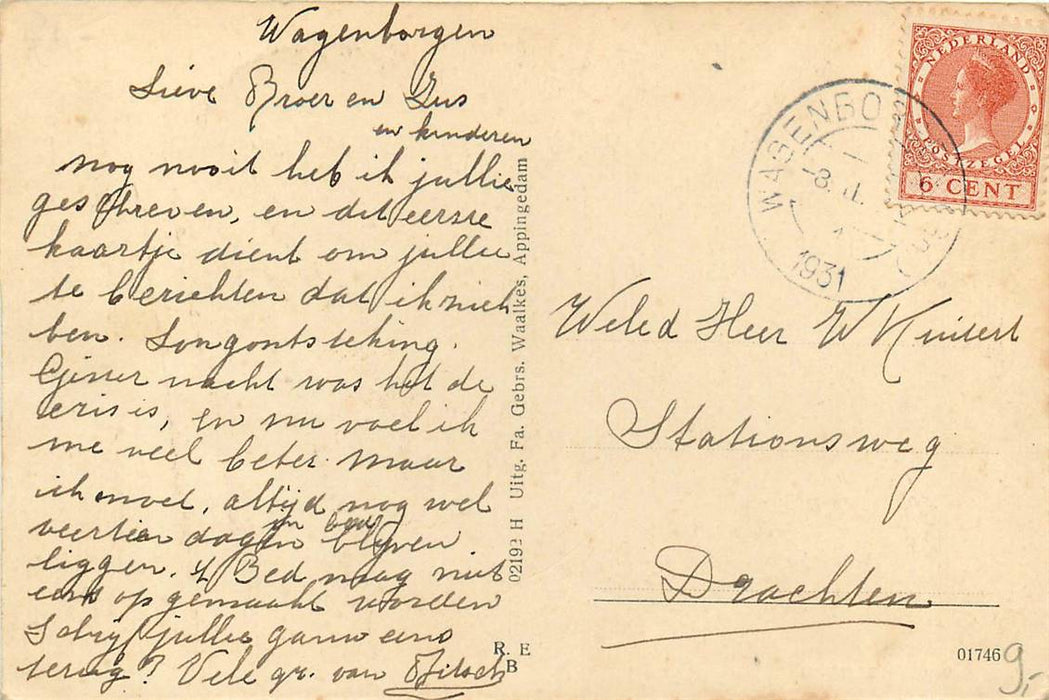 Wagenborgen
Lieve Broer en Zus
en kinderen
nog nooit heb ik jullie
geschreven, en dit eerste
kaartje dient om jullie
te berichten dat ik ziek
ben. Longontsteking.
Gister nacht was het de
crisis, en nu voel ik
me veel beter. Maar
ik moet, altijd nog wel
veertien dagen in bed blijven
liggen. 't Bed mag niet
eens op gemaakt worden
Schrijf jullie gauw eens
terug? Vele gr. van
02192 H Uitg. Fa. Gebrs. Waalkes, Appingedam
R. E
B
NEDERLAND
POSTZEGEL
6 CENT
WAGENBOR
1931
Weled Heer W
Stationsweg
Drachten
01746
9,-